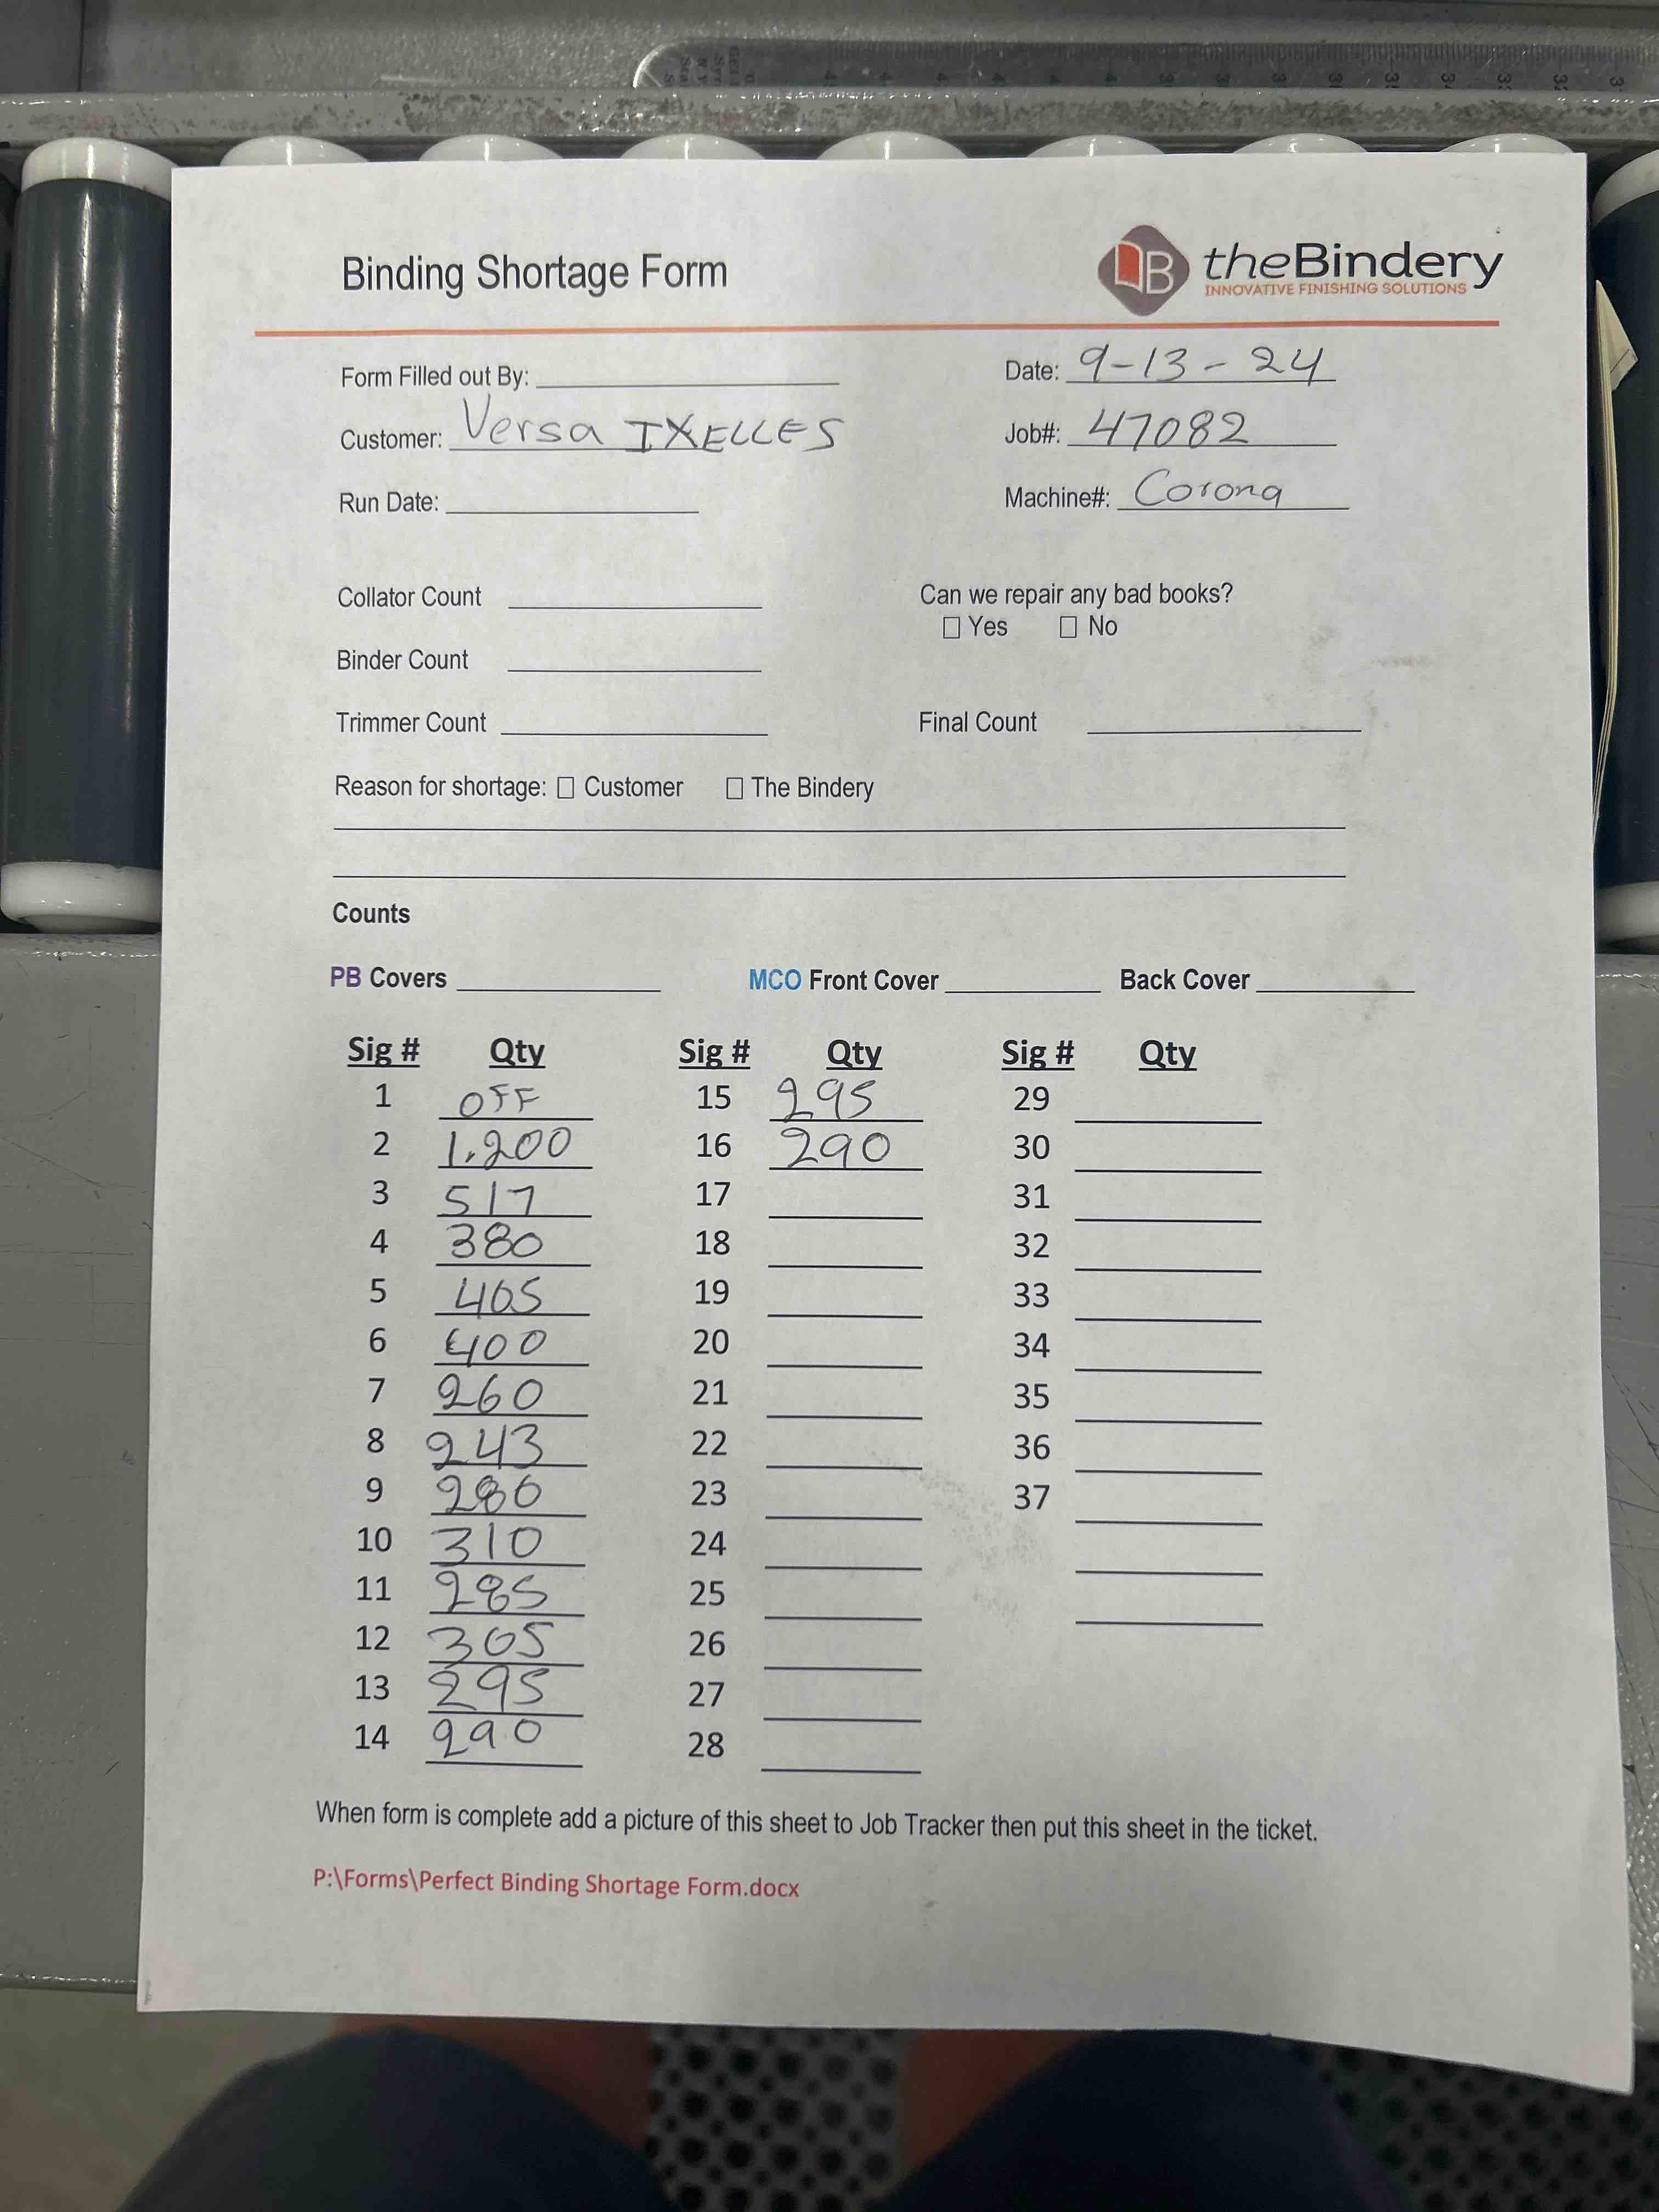 Binding Shortage Form
B theBindery
INNOVATIVE FINISHING SOLUTIONS
Form Filled out By:
Date: 9-13-24
Customer: Versa IXELLES
Job#: 47082
Run Date:
Machine#: Corona
Collator Count
Can we repair any bad books?
☐ Yes ☐ No
Binder Count
Trimmer Count
Final Count
Reason for shortage: ☐ Customer ☐ The Bindery
Counts
PB Covers
MCO Front Cover
Back Cover
Sig # Qty Sig # Qty Sig # Qty
1 OFF 15 295 29
2 1,200 16 290 30
3 517 17 31
4 380 18 32
5 405 19 33
6 400 20 34
7 260 21 35
8 243 22 36
9 280 23 37
10 310 24
11 285 25
12 305 26
13 295 27
14 290 28
When form is complete add a picture of this sheet to Job Tracker then put this sheet in the ticket.
P:\Forms\Perfect Binding Shortage Form.docx